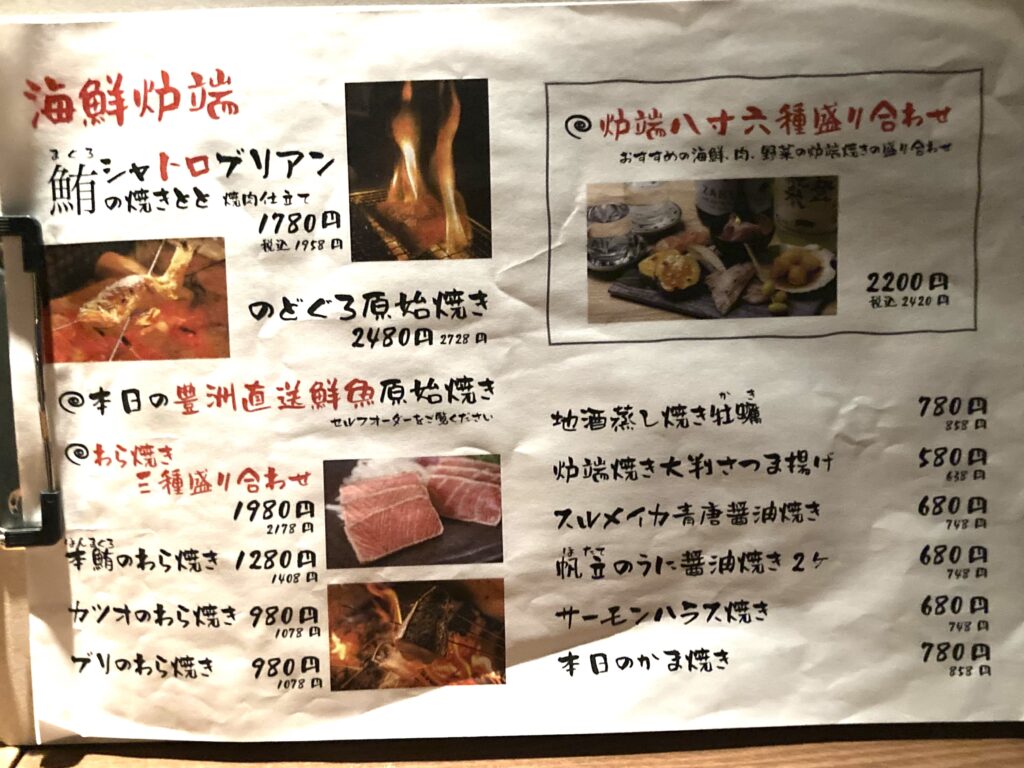 海鮮炉端
まぐろ
鮪シャトロブリアン
の焼きとと 焼肉仕立て
1780円
税込 1958円
のどぐろ原始焼き
2480円 2728円
本日の豊洲直送鮮魚原始焼き
セルフオーダーをご覧ください
わら焼き
三種盛り合わせ
1980円
2178円
ほんまぐろ
本鮪のわら焼き 1280円
1408円
カツオのわら焼き 980円
1078円
ブリのわら焼き 980円
1078円
炉端八寸六種盛り合わせ
おすすめの海鮮、肉、野菜の炉端焼きの盛り合わせ
2200円
税込 2420円
かき
地酒蒸し焼き牡蠣 780円
858円
炉端焼き大判さつま揚げ 580円
638円
スルメイカ青唐醤油焼き 680円
748円
ほたて
帆立のうに醤油焼き 2ヶ 680円
748円
サーモンハラス焼き 680円
748円
本日のかま焼き 780円
858円